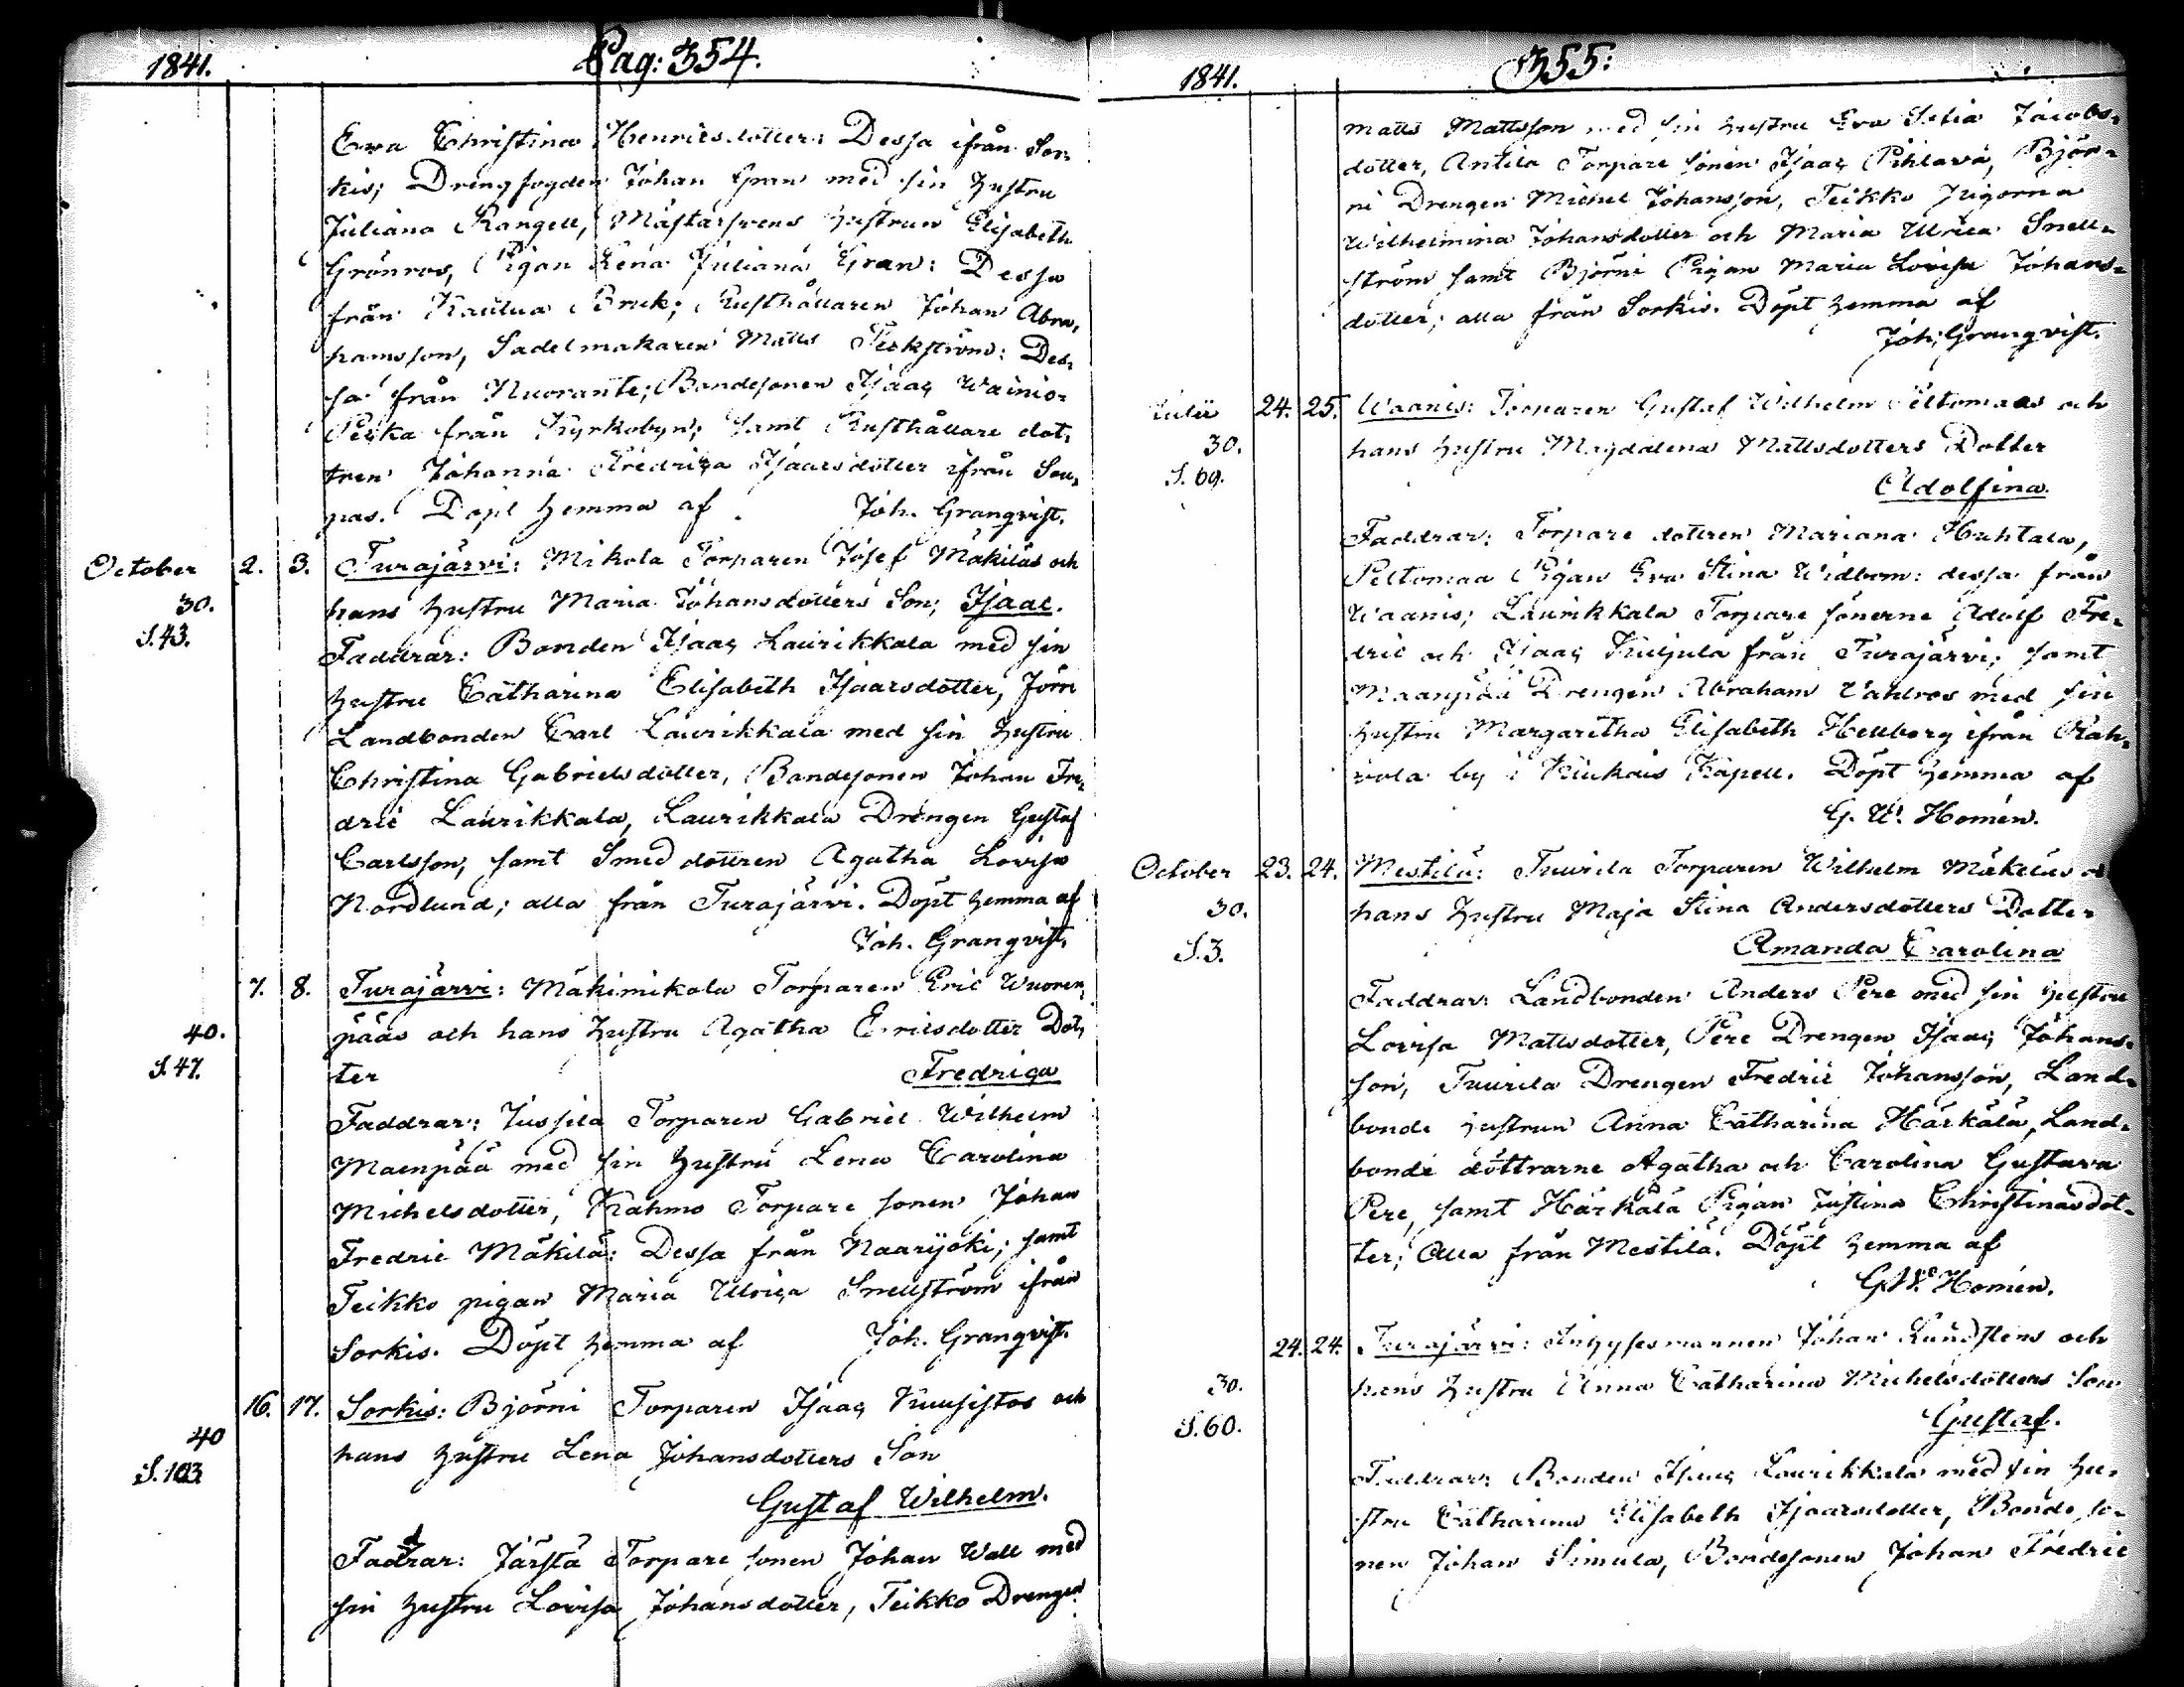 1841. Pag: 354.
Ewa Christina Henricsdotter: Dessa ifrån Sor-
kis; Drengfogden Johan Gran med sin hustru
Juliana Rangell, Mästarsvens hustrun Elisabeth
Grönroos, Pigan Lena Juliana Gran: Dessa
från Kauttua Bruk; Rusthållaren Johan Abra-
hamsson, Sadelmakaren Matts Feekström: Des-
sa från Nuorante; Bondesonen Isaac Wainio-
Pexka från Kyrkobyn; samt Rusthållare dot-
tren Johanna Fredrica Isaacsdotter ifrån Sou-
pas. Döpt hemma af Joh. Granqvist.
October 2. 3. Turajärvi: Mikola Torparen Josef Mäkiläs och
30. hans hustru Maria Johansdotters Son; Isaac.
S. 43. Faddrar: Bonden Isaac Laurikkala med sin
hustru Catharina Elisabeth Isaacsdotter,
Landbonden Carl Laurikkala med sin hustru
Christina Gabrielsdotter, Bondesonen Johan Fre-
dric Laurikkala, Laurikkala Drengen Gustaf
Carlsson, samt Smed dottren Agatha Lovisa
Nordlund; alla från Turajärvi. Döpt hemma af
Joh. Granqvist.
7. 8. Turajärvi: Mäkimikola Torparen Eric Wuoren-
40. pääs och hans hustru Agatha Ericsdotter Dot-
S. 47. ter Fredrica
Faddrar: Jussila Torparen Gabriel Wilhelm
Maenpää med sin hustru Lena Carolina
Michelsdotter, Kahmo Torpare sonen Johan
Fredric Mäkilä: Dessa från Naarijoki; samt
Teikko pigan Maria Ulrica Snellström ifrån
Sorkis. Döpt hemma af Joh. Granqvist.
16. 17. Sorkis: Björni Torparen Isaac Kuusistos och
40 hans hustru Lena Johansdotters Son
S. 103 Gustaf Wilhelm.
Faddrar: Järstä Torpare sonen Johan Wall med
sin hustru Lovisa Johansdotter, Teikko Drengen
1841. 355:
Matts Mattsson med sin hustru Eva Jacobs-
dotter, Antila Torpare sonen Isaac Pihlava, Björ-
ni Drengen Michel Johansson, Teikko Pigorna
Wilhelmina Johansdotter och Maria Ulrica Snell-
ström samt Björni Pigan Maria Lovisa Johans-
dotter; alla från Sorkis. Döpt hemma af
Joh. Granqvist.
Julii 24. 25. Waanis: Torparen Gustaf Wilhelm Peltomaas och
30. hans hustru Magdalena Mattsdotters Dotter
S. 69. Adolfina.
Faddrar: Torpare dottren Mariana Huhtala,
Peltomaa Pigan Eva Stina Widbom: dessa från
Waanis; Laurikkala Torpare sönerne Adolf Fre-
dric och Isaac Kuljula från Turajärvi; samt
Maanpää Drengen Abraham Vahlros med sin
hustru Margaretha Elisabeth Hellborg ifrån Rah-
vola by i Kiukais Kapell. Döpt hemma af
G. W. Homén.
October 23. 24. Mestilä: Tuurila Torparen Wilhelm Mäkeläs o
30. hans hustru Maja Stina Andersdotters Dotter
S. 3. Amanda Carolina
Faddrar: Landbonden Anders Pere med sin hustru
Lovisa Mattsdotter, Pere Drengen Isaac Johans-
son, Tuurila Drengen Fredric Johansson, Land-
bonde hustrun Anna Catharina Härkälä, Land-
bonde döttrarne Agatha och Carolina Gustava
Pere, samt Härkälä Pigan Justina Christinasdot-
ter; Alla från Mestilä. Döpt hemma af
G. W. Homén.
24. 24. Turajärvi: Inhysesmannen Johan Lundstens och
30. hans hustru Anna Catharina Michelsdotters Son
S. 60. Gustaf.
Faddrar: Bonden Isaac Laurikkala med sin hu-
stru Catharina Elisabeth Isaacsdotter, Bonde so-
nen Johan Simula, Bondesonen Johan Fredric